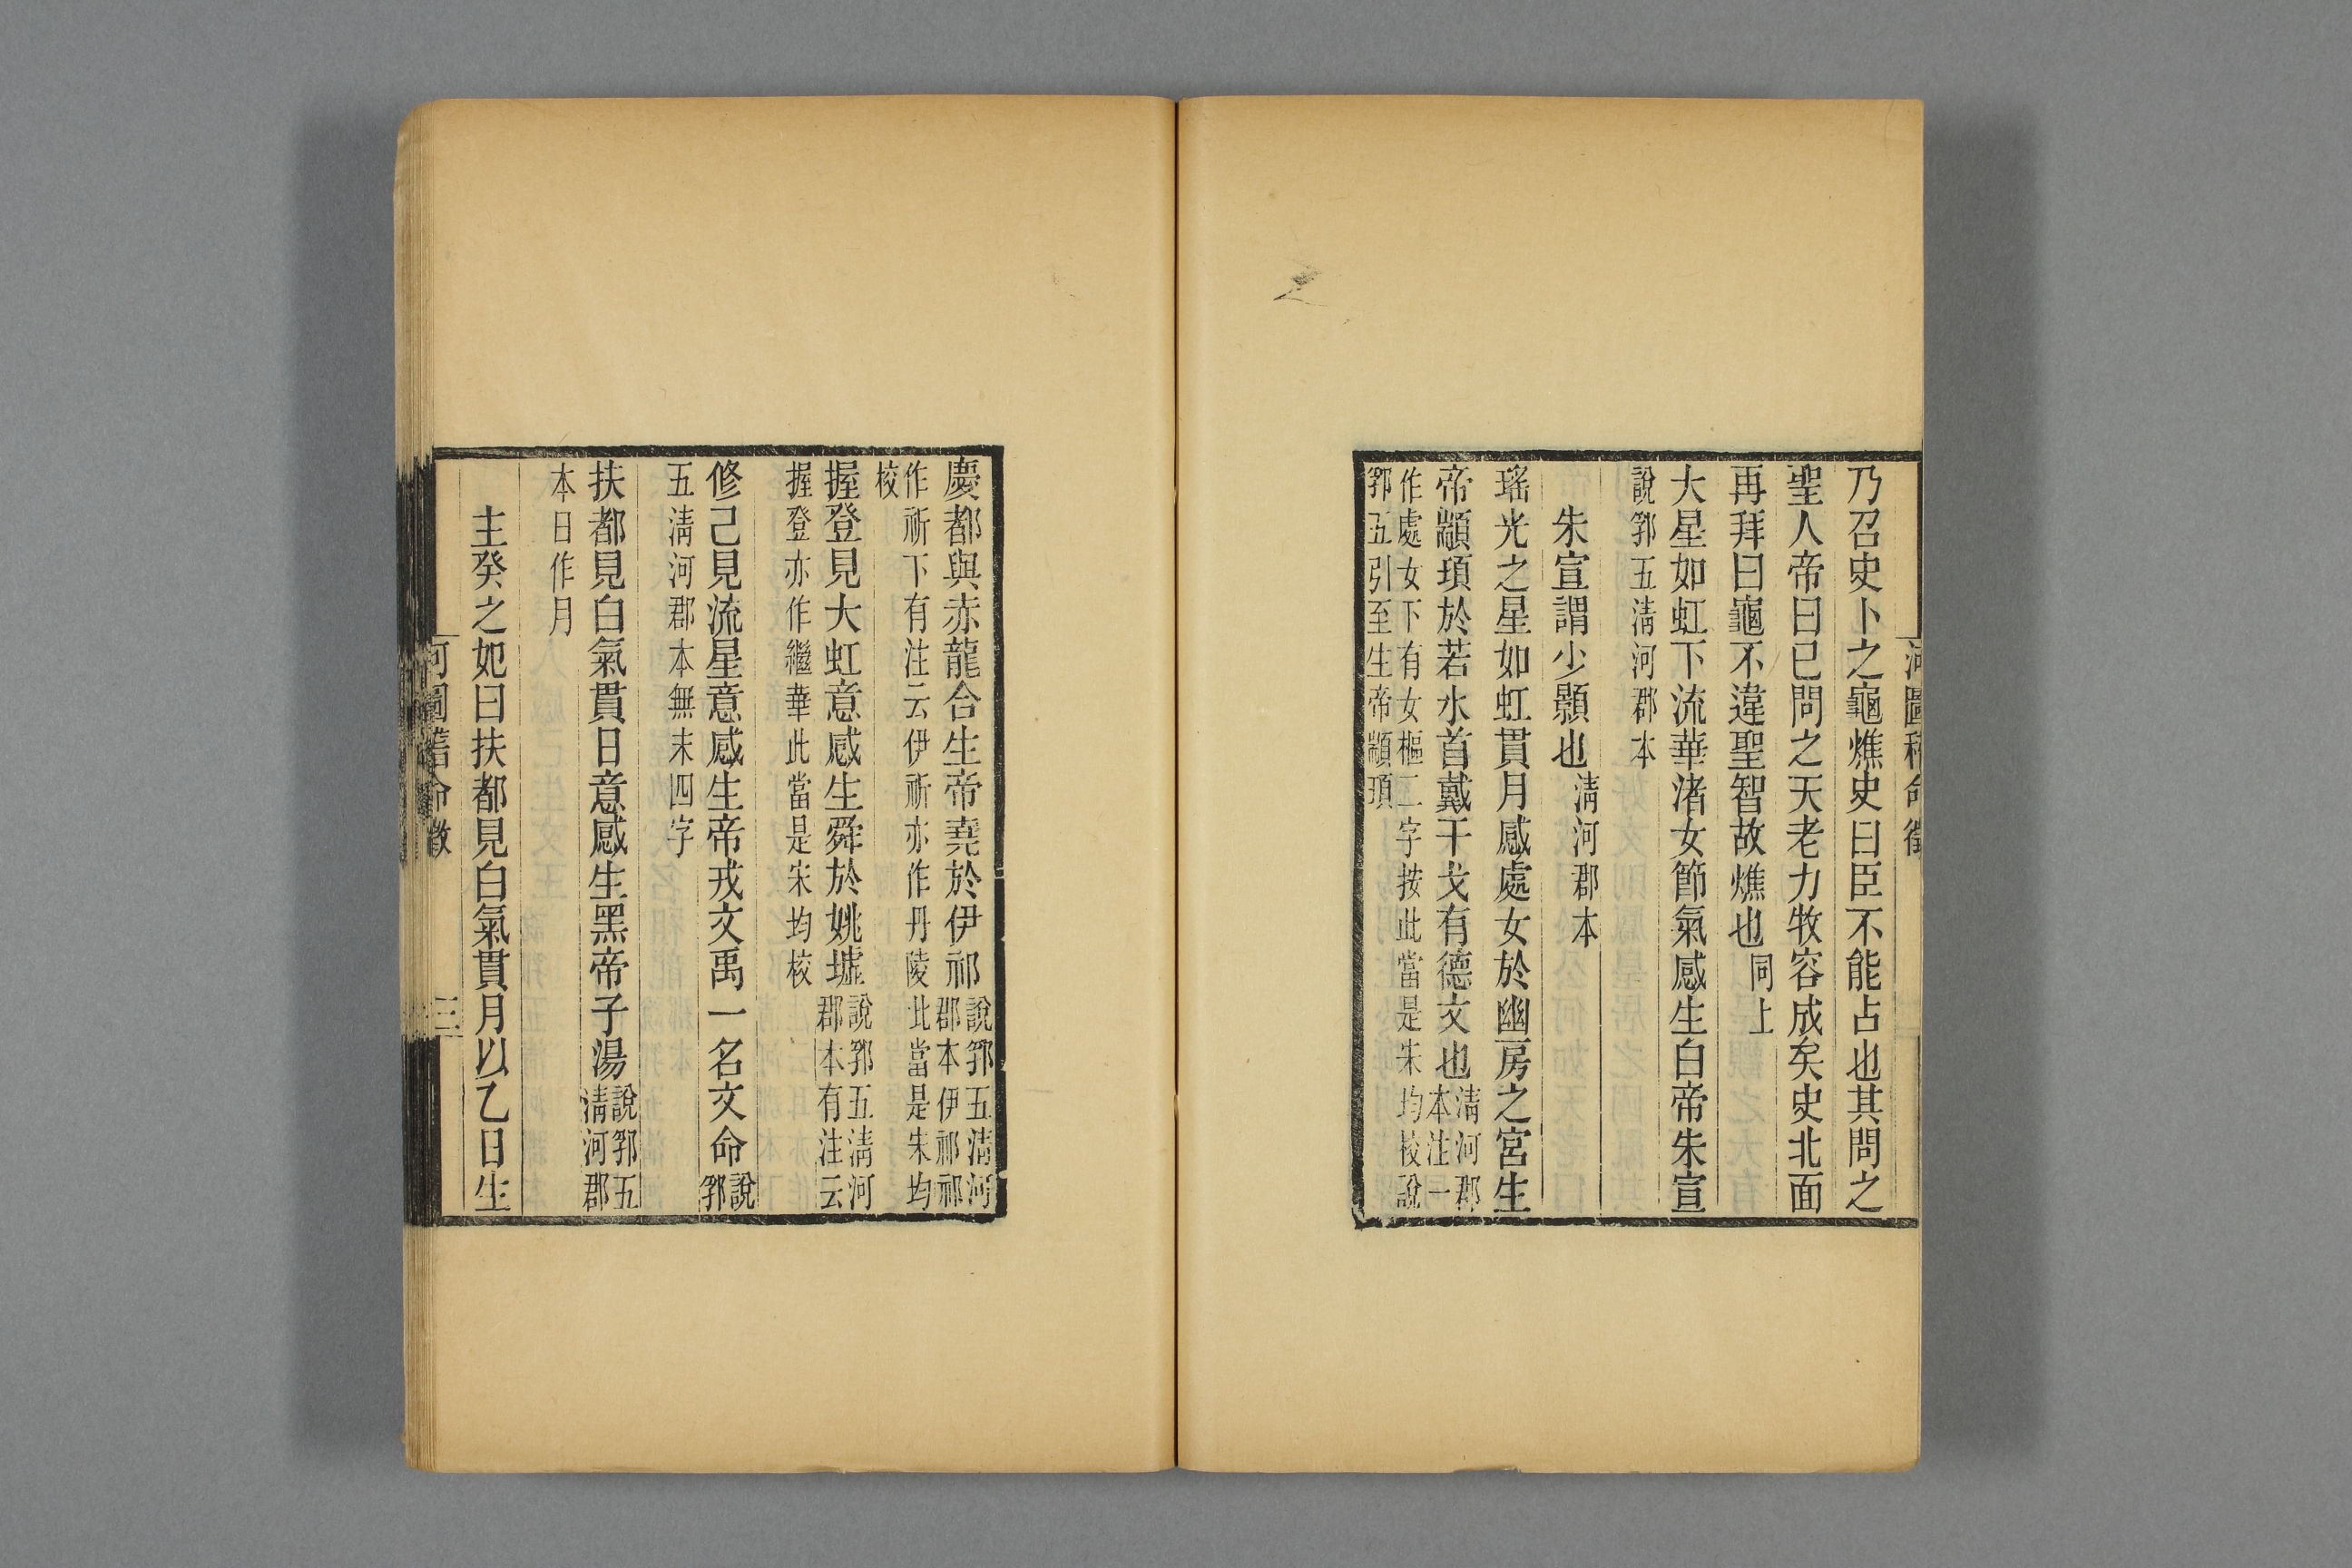 河圖稽命徵
乃召史卜之龜燋史曰臣不能占也其問之
聖人帝曰已問之天老力牧容成矣史北面
再拜曰龜不違聖智故燋也同上
大星如虹下流華渚女節氣感生白帝朱宣
說郛五淸河郡本
朱宣謂少顥也淸河郡本
瑤光之星如虹貫月感處女於幽房之宮生
帝顓頊於若水首戴干戈有德文也淸河郡本注一
作處女下有女樞二字按此當是宋均校說
郛五引至生帝顓頊
慶都與赤龍合生帝堯於伊祁說郛五淸河郡本伊祁祁
作祈下有注云伊祈亦作丹陵此當是朱均
校
握登見大虹意感生舜於姚墟說郛五淸河郡本有注云
握登亦作繼華此當是宋均校
修己見流星意感生帝戎文禹一名文命說郛
五淸河郡本無末四字
扶都見白氣貫日意感生黑帝子湯說郛五淸河郡
本日作月
主癸之妃曰扶都見白氣貫月以乙日生
河圖稽命徵
三